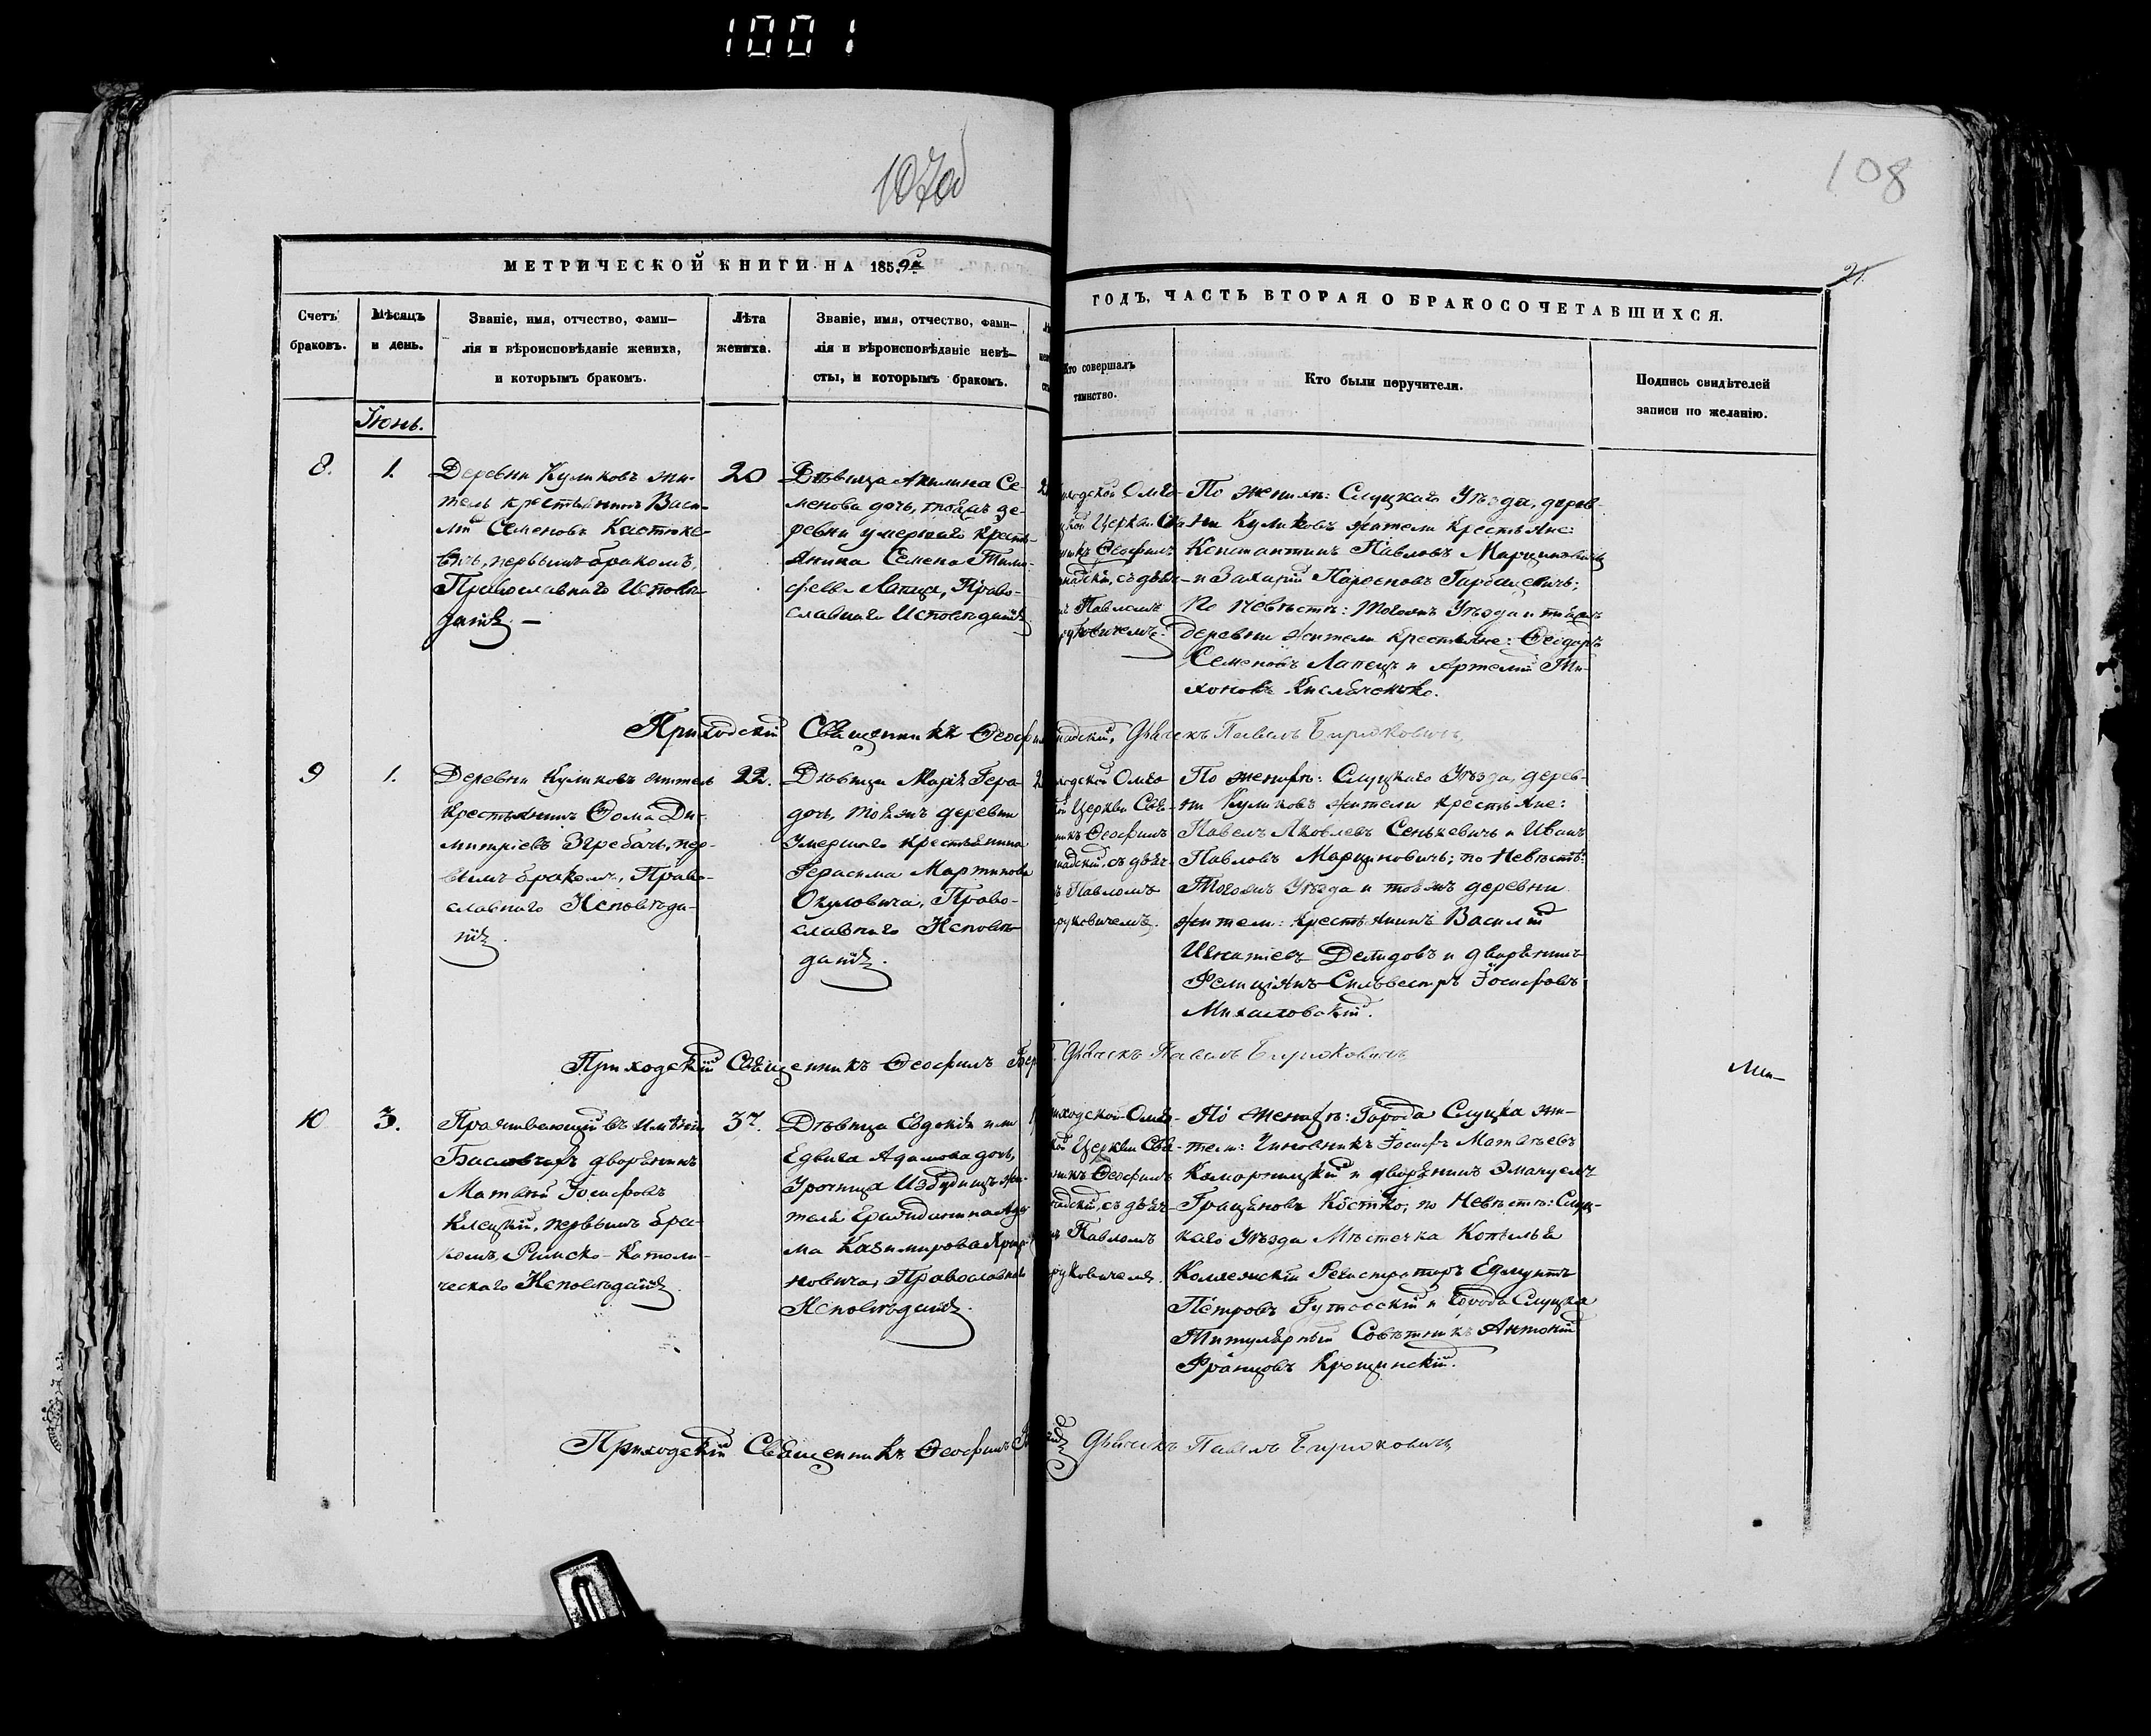 1001
107об
108
МЕТРИЧЕСКОЙ КНИГИ НА 1859й
ГОДЪ, ЧАСТЬ ВТОРАЯ О БРАКОСОЧЕТАВШИХСЯ.
21.
Счетъ
браковъ.
Мѣсяцъ
и день.
Званіе, имя, отчество, фами-
лія и вѣроисповѣданіе жениха,
и которымъ бракомъ.
Лѣта
жениха.
Званіе, имя, отчество, фами-
лія и вѣроисповѣданіе невѣ-
сты, и которымъ бракомъ.
Кто совершалъ
таинство.
Кто были поручители.
Подпись свидѣтелей
записи по желанію.
Іюнь.
8.
1.
Деревни Куликовъ жи-
тель крестьянинъ Васи-
лій Семеновъ
первымъ бракомъ,
Православнаго Исповѣ-
данія. —
20
Дѣвица Акилина Се-
менова дочь, тойжъ де-
ревни умершаго кресть-
янина Семена Тимо-
феева Лапца, Право-
славнаго Исповѣданія
Церкви Свя-
Ѳеофилъ
съ дьяч-
Павломъ
По женихѣ: Слуцкаго Уѣзда, дерев-
ни Куликовъ жители крестьяне:
Константинъ Павловъ Марциновичъ
и Захарій Парѳеновъ
по невѣстѣ: тогожъ Уѣзда и тойжъ
деревни жители крестьяне: Ѳеодоръ
Семеновъ Лапецъ и Артемій Ти-
хоновъ
Приходскій Священникъ
Дьячекъ Павелъ Бируковичъ
9
1.
Деревни Куликовъ житель
крестьянинъ Ѳома Ди-
митріевъ Згребачь, пер-
вымъ бракомъ, Право-
славнаго Исповѣда-
нія.
22.
Дѣвица Марія Гера-
дочь, тойжъ деревни
Умершаго крестьянина
Герасима Мартинова
Окуловича, Право-
славнаго Исповѣ-
данія.
Церкви Свя-
Ѳеофилъ
съ дьяч-
Павломъ
По женихѣ: Слуцкаго Уѣзда, дерев-
ни Куликовъ жители крестьяне:
Павелъ Яковлевъ Сенькевичъ и Иванъ
Павловъ Марциновичъ; по Невѣстѣ:
Тогожъ Уѣзда и тойжъ деревни
жители: крестьянинъ Василій
Игнатіевъ Демидовъ и дворянинъ
Фелиціянъ-Сильвестръ Іосифовъ
Михаловскій.
Приходскій Священникъ Ѳеофилъ
Дьячекъ Павелъ Бируковичъ
Ми-
10
3.
Проживающій въ имѣніи
дворянинъ
Матвѣй Іосифовъ
Клецкій, первымъ бра-
комъ, Римско-Католи-
ческаго Исповѣданія.
37.
Дѣвица Евдокія или
Едвига Адамова дочь,
Урочища жи-
теля Гражданина Ада-
ма Казимирова
Православнаго
Исповѣданія.
Церкви Свя-
Ѳеофилъ
съ дьяч-
Павломъ
По женихѣ: Города Слуцка жи-
тели: Чиновникъ Іосифъ Матвѣевъ
Коморницкій и дворянинъ Эмануелъ
Граціановъ Костко; по Невѣстѣ: Слуц-
каго Уѣзда Мѣстечка Копыля
Коллежскій Регистраторъ Едмундъ
Петровъ и города Слуцка
Титулярный Совѣтникъ Антоній
Францовъ Крощинскій.
Приходскій Священникъ Ѳеофилъ
Дьячекъ Павелъ Бируковичъ